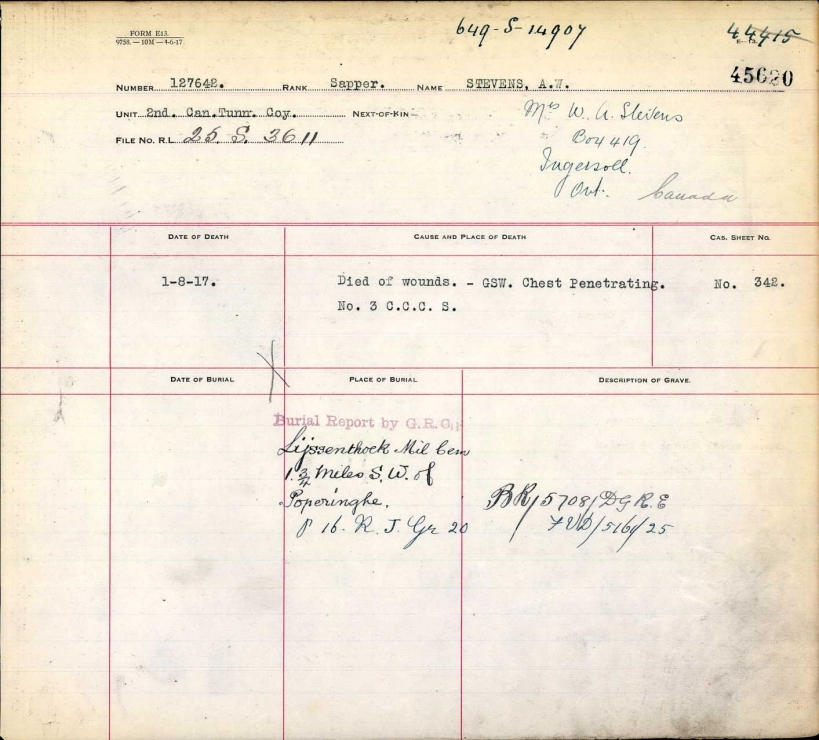 FORM E13.
9758. — 10M — 4-6-17.
649-S-14907
44415
45620
NUMBER 127642. RANK Sapper. NAME STEVENS, A.W.
UNIT 2nd. Can.Tunn. Coy. NEXT-OF-KIN
Mrs W. A. Stevens
Box 419.
Ingersoll.
Ont. Canada
FILE NO. R.L. 25. S. 3611
DATE OF DEATH CAUSE AND PLACE OF DEATH CAS. SHEET NO.
1-8-17. Died of wounds. - GSW. Chest Penetrating. No. 342.
No. 3 C.C.C. S.
DATE OF BURIAL PLACE OF BURIAL DESCRIPTION OF GRAVE.
Burial Report by G.R.C.
Lijssenthoek Mil Cem
1 3/4 Miles S.W. of
Poperinghe.
P 16. R. J. Gr 20
BR/5708/DGR.E